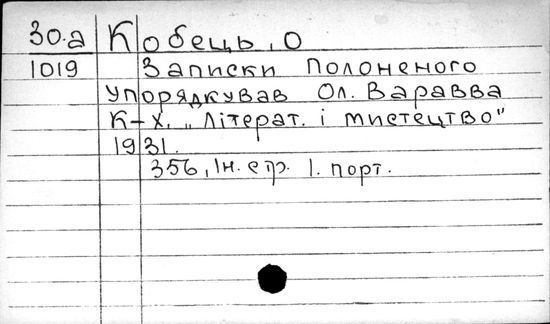 30.а Кобець, О
1019 Записки полоненого
упорядкував Ол. Варавва
К-Х. „Літерат. і мистецтво"
1931.
356, Ін. стр. 1. порт.